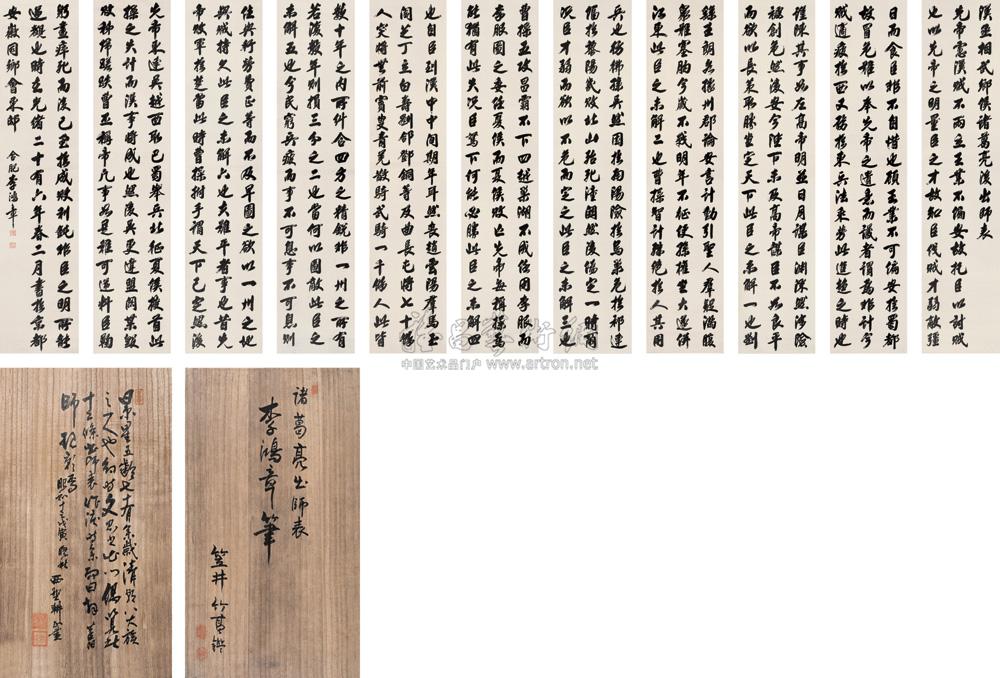 漢丞相武鄉侯諸葛亮後出師表
先帝慮漢賊不兩立王業不偏安故托臣以討賊
也以先帝之明量臣之才故知臣伐賊才弱敵彊
日而食臣非不自惜也顧王業不可偏安於蜀都
故冒危難以奉先帝之遺意而議者謂為非計今
賊適疲於西又務於東兵法乘勞此進趨之時也
謹陳其事如左高帝明並日月謀臣淵深然涉險
被創危然後安今陛下未及高帝謀臣不如良平
而欲以長策取勝坐定天下此臣之未解一也劉
繇王朗各據州郡論安言計動引聖人羣疑滿腹
衆難塞胸今歲不戰明年不征使孫權坐大遂併
江東此臣之未解二也曹操智計殊絕於人其用
兵也彷彿孫吳然困於南陽險於烏巢危於祁連
偪於黎陽幾敗北山殆死潼關然後偽定一時爾
況臣才弱而欲以不危而定之此臣之未解三也
曹操五攻昌霸不下四越巢湖不成任用李服而
李服圖之委任夏侯而夏侯敗亡先帝每稱操為
能猶有此失況臣駑下何能必勝此臣之未解四
也自臣到漢中中間期年耳然喪趙雲陽羣馬玉
閻芝丁立白壽劉郃鄧銅等及曲長屯將七十餘
人突將無前賨叟青羌散騎武騎一千餘人此皆
數十年之內所糾合四方之精銳非一州之所有
若復數年則損三分之二也當何以圖敵此臣之
未解五也今民窮兵疲而事不可息事不可息則
住與行勞費正等而不及早圖之欲以一州之地
與賊持久此臣之未解六也夫難平者事也昔先
帝敗軍於楚當此時曹操拊手謂天下已定然後
先帝東連吳越西取巴蜀舉兵北征夏侯授首此
操之失計而漢事將成也然後吳更違盟關羽毀
敗秭歸蹉跌曹丕稱帝凡事如是難可逆料臣鞠
躬盡瘁死而後已至於成敗利鈍非臣之明所能
逆覩也時在光緒二十有六年春二月書於京都
安徽同鄉會東邸 合肥李鴻章
諸葛亮出師表
李鴻章筆
笠井竹
昭和十三戊寅
中国艺术品门户 www.artron.net